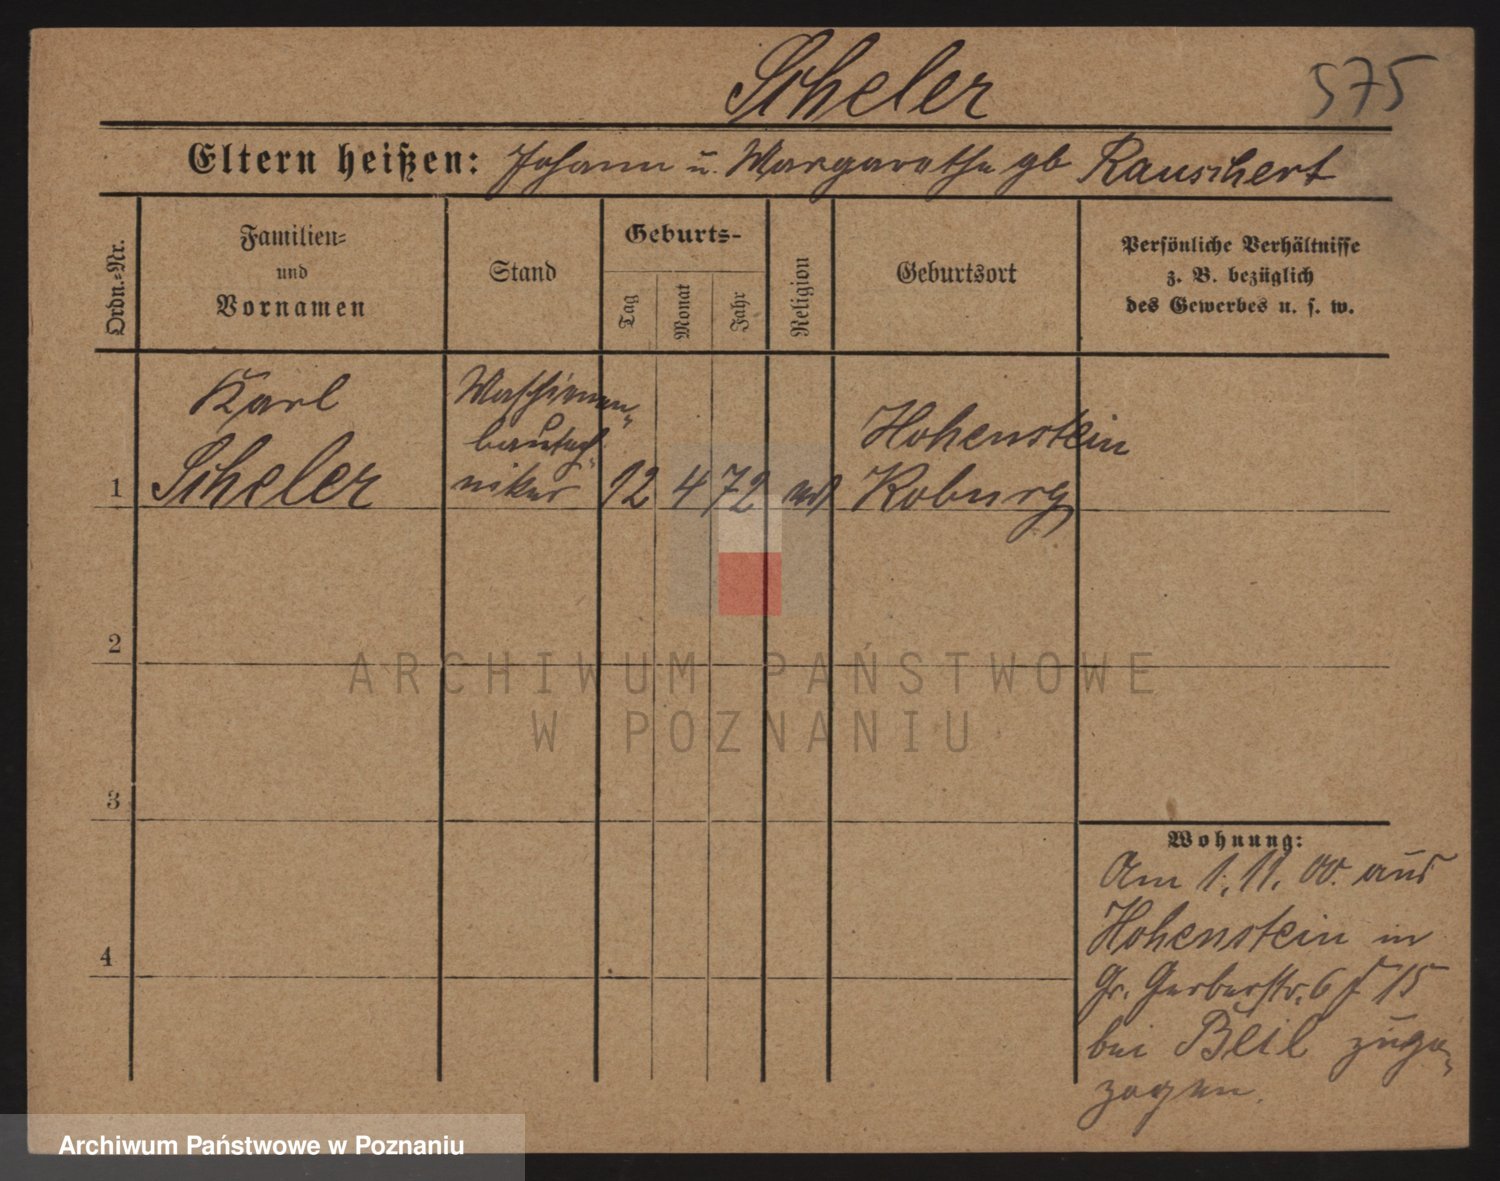 Scheler 575
Eltern heißen: Johann u. Margarethe gb Rauschert
Ordn.-Nr.
Familien-
und
Vornamen
Stand
Geburts-
Tag
Monat
Jahr
Religion
Geburtsort
Persönliche Verhältnisse
z. B. bezüglich
des Gewerbes u. s. w.
1
Karl
Scheler
Maschinen-
bautech-
niker
12
4
72
Hohenstein
Koburg
2
3
4
Wohnung:
Am 1. 11. 00. aus
Hohenstein in
Gr. Gerberstr. 6 15
bei Beil zuge-
zogen.
ARCHIWUM PAŃSTWOWE
W POZNANIU
Archiwum Państwowe w Poznaniu